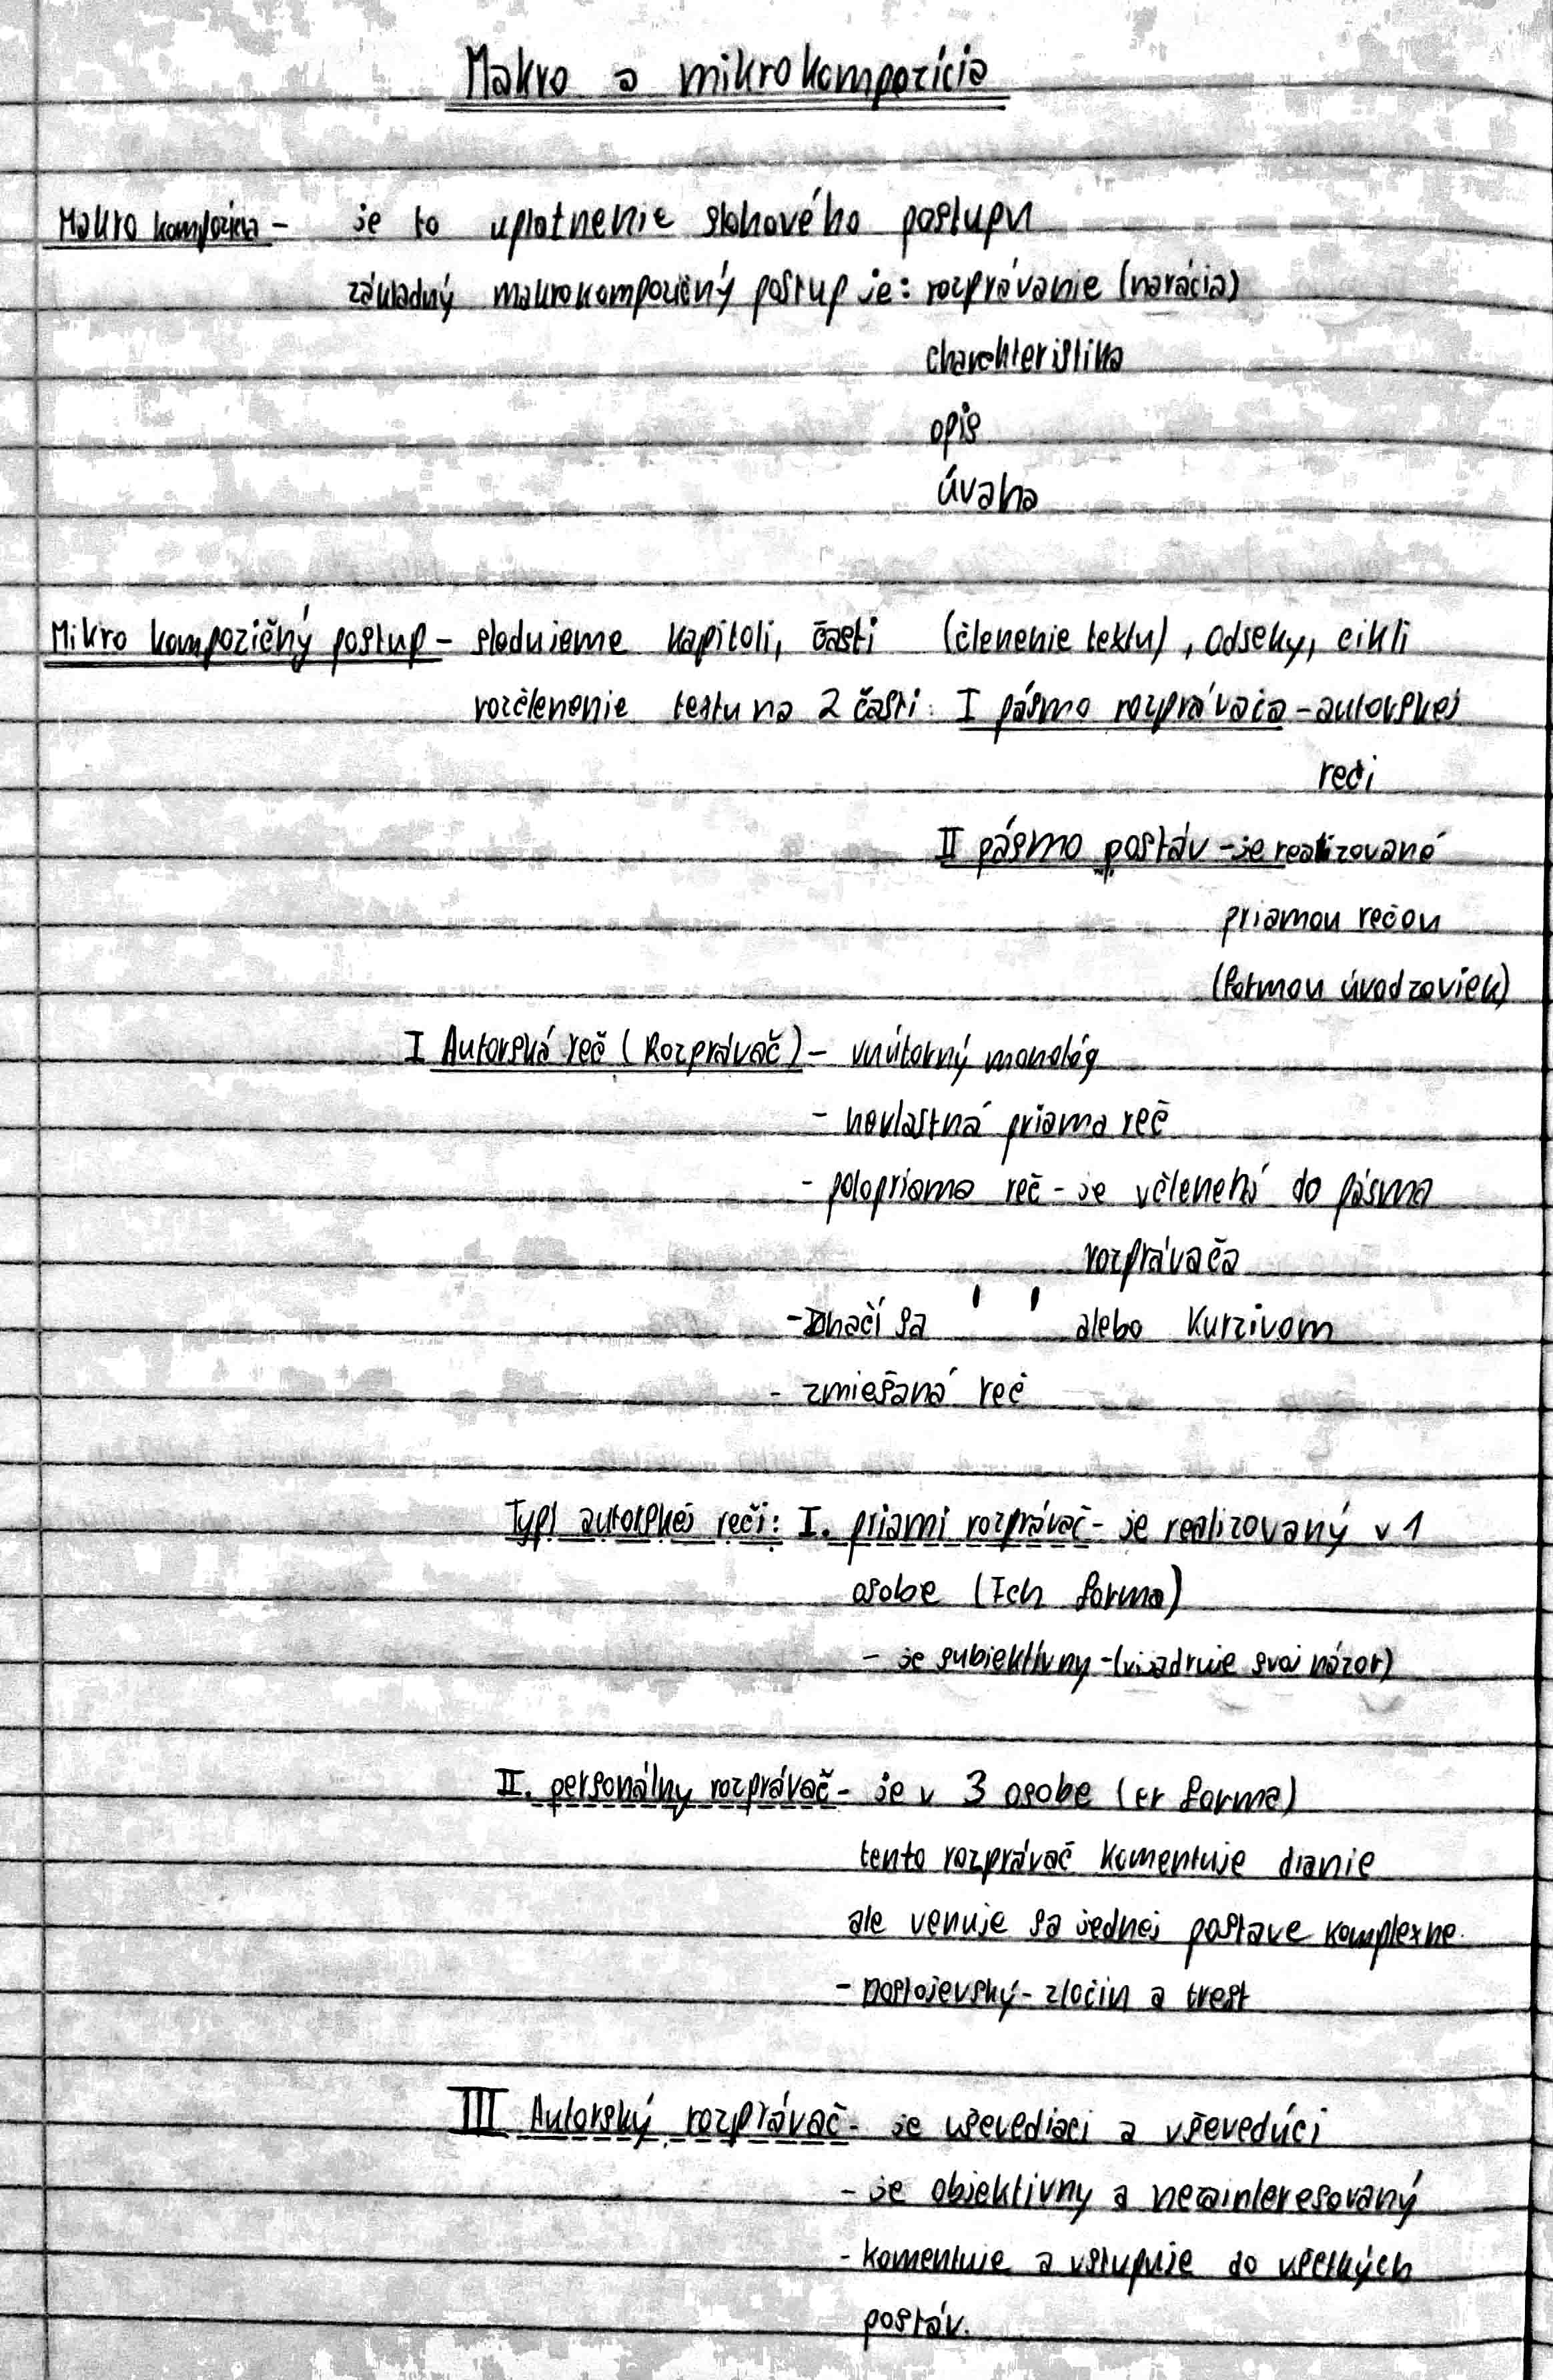 Makro a mikrokompozícia
Makro kompozícia - je to uplatnenie slohového postupu
základný makrokompozičný postup je: rozprávanie (narácia)
charakteristika
opis
úvaha
Mikro kompozičný postup - sledujeme kapitoli, časti (členenie textu), odseky, cikli
rozčlenenie textu na 2 časti: I pásmo rozprávača - autorskej
reči
II pásmo postáv - je realizované
priamou rečou
(formou úvodzoviek)
I Autorská reč (Rozprávač) - vnútorný monológ
- nevlastná priama reč
- polopriama reč - je včlenená do pásma
rozprávača
- značí sa ' ' alebo Kurzivom
- zmiešaná reč
Typi autorskej reči: I. priami rozprávač - je realizovaný v 1
osobe (Ich forma)
- je subiektívny - (vijadruje svoj názor)
II. personálny rozprávač - je v 3 osobe (er forma)
tento rozprávač komentuje dianie
ale venuje sa jednej postave komplexne.
- Dostojevský - zločin a trest
III Autorský rozprávač - je vševediaci a vševedúci
- je objektívny a nezainteresovaný
- komentuje a vstupuje do všetkých
postáv.